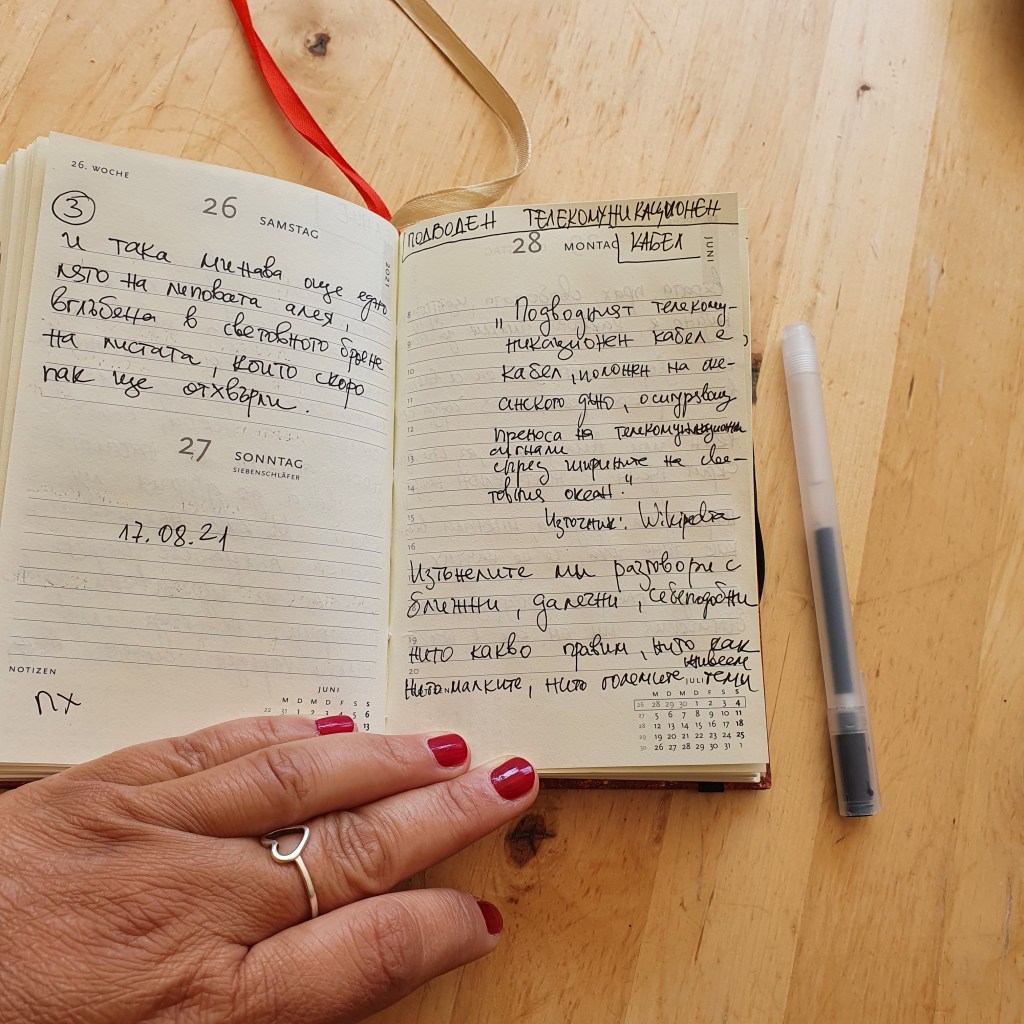 26. WOCHE
26 SAMSTAG
2021
3
И така минава още едно
лято на леповата алея,
вглъбена в световното броене
на листата, които скоро
пак ще отхвърли.
27 SONNTAG
SIEBENSCHLÄFER
17.08.21
NOTIZEN
ПХ
JUNI
M D M D F S S
22 31 1 2 3 4 5 6
13
ПОДВОДЕН ТЕЛЕКОМУНИКАЦИОНЕН
28 MONTAG КАБЕЛ
JUNI
„Подводният телекому-
никационен кабел е,
кабел, положен на оке-
анското дъно, осигуряващ
преноса на телекомуникационни
сигнали
през ширините на све-
товния океан."
Източник: Wikipedia
Изтънелите ми разговори с
ближни, далечни, себеподобни
нито какво правим, нито как
живеем
нито малките, нито големите теми
8
9
10
11
12
13
14
15
16
19
20
JULI
M D M D F S S
26 28 29 30 1 2 3 4
27 5 6 7 8 9 10 11
28 12 13 14 15 16 17 18
29 19 20 21 22 23 24 25
30 26 27 28 29 30 31 1